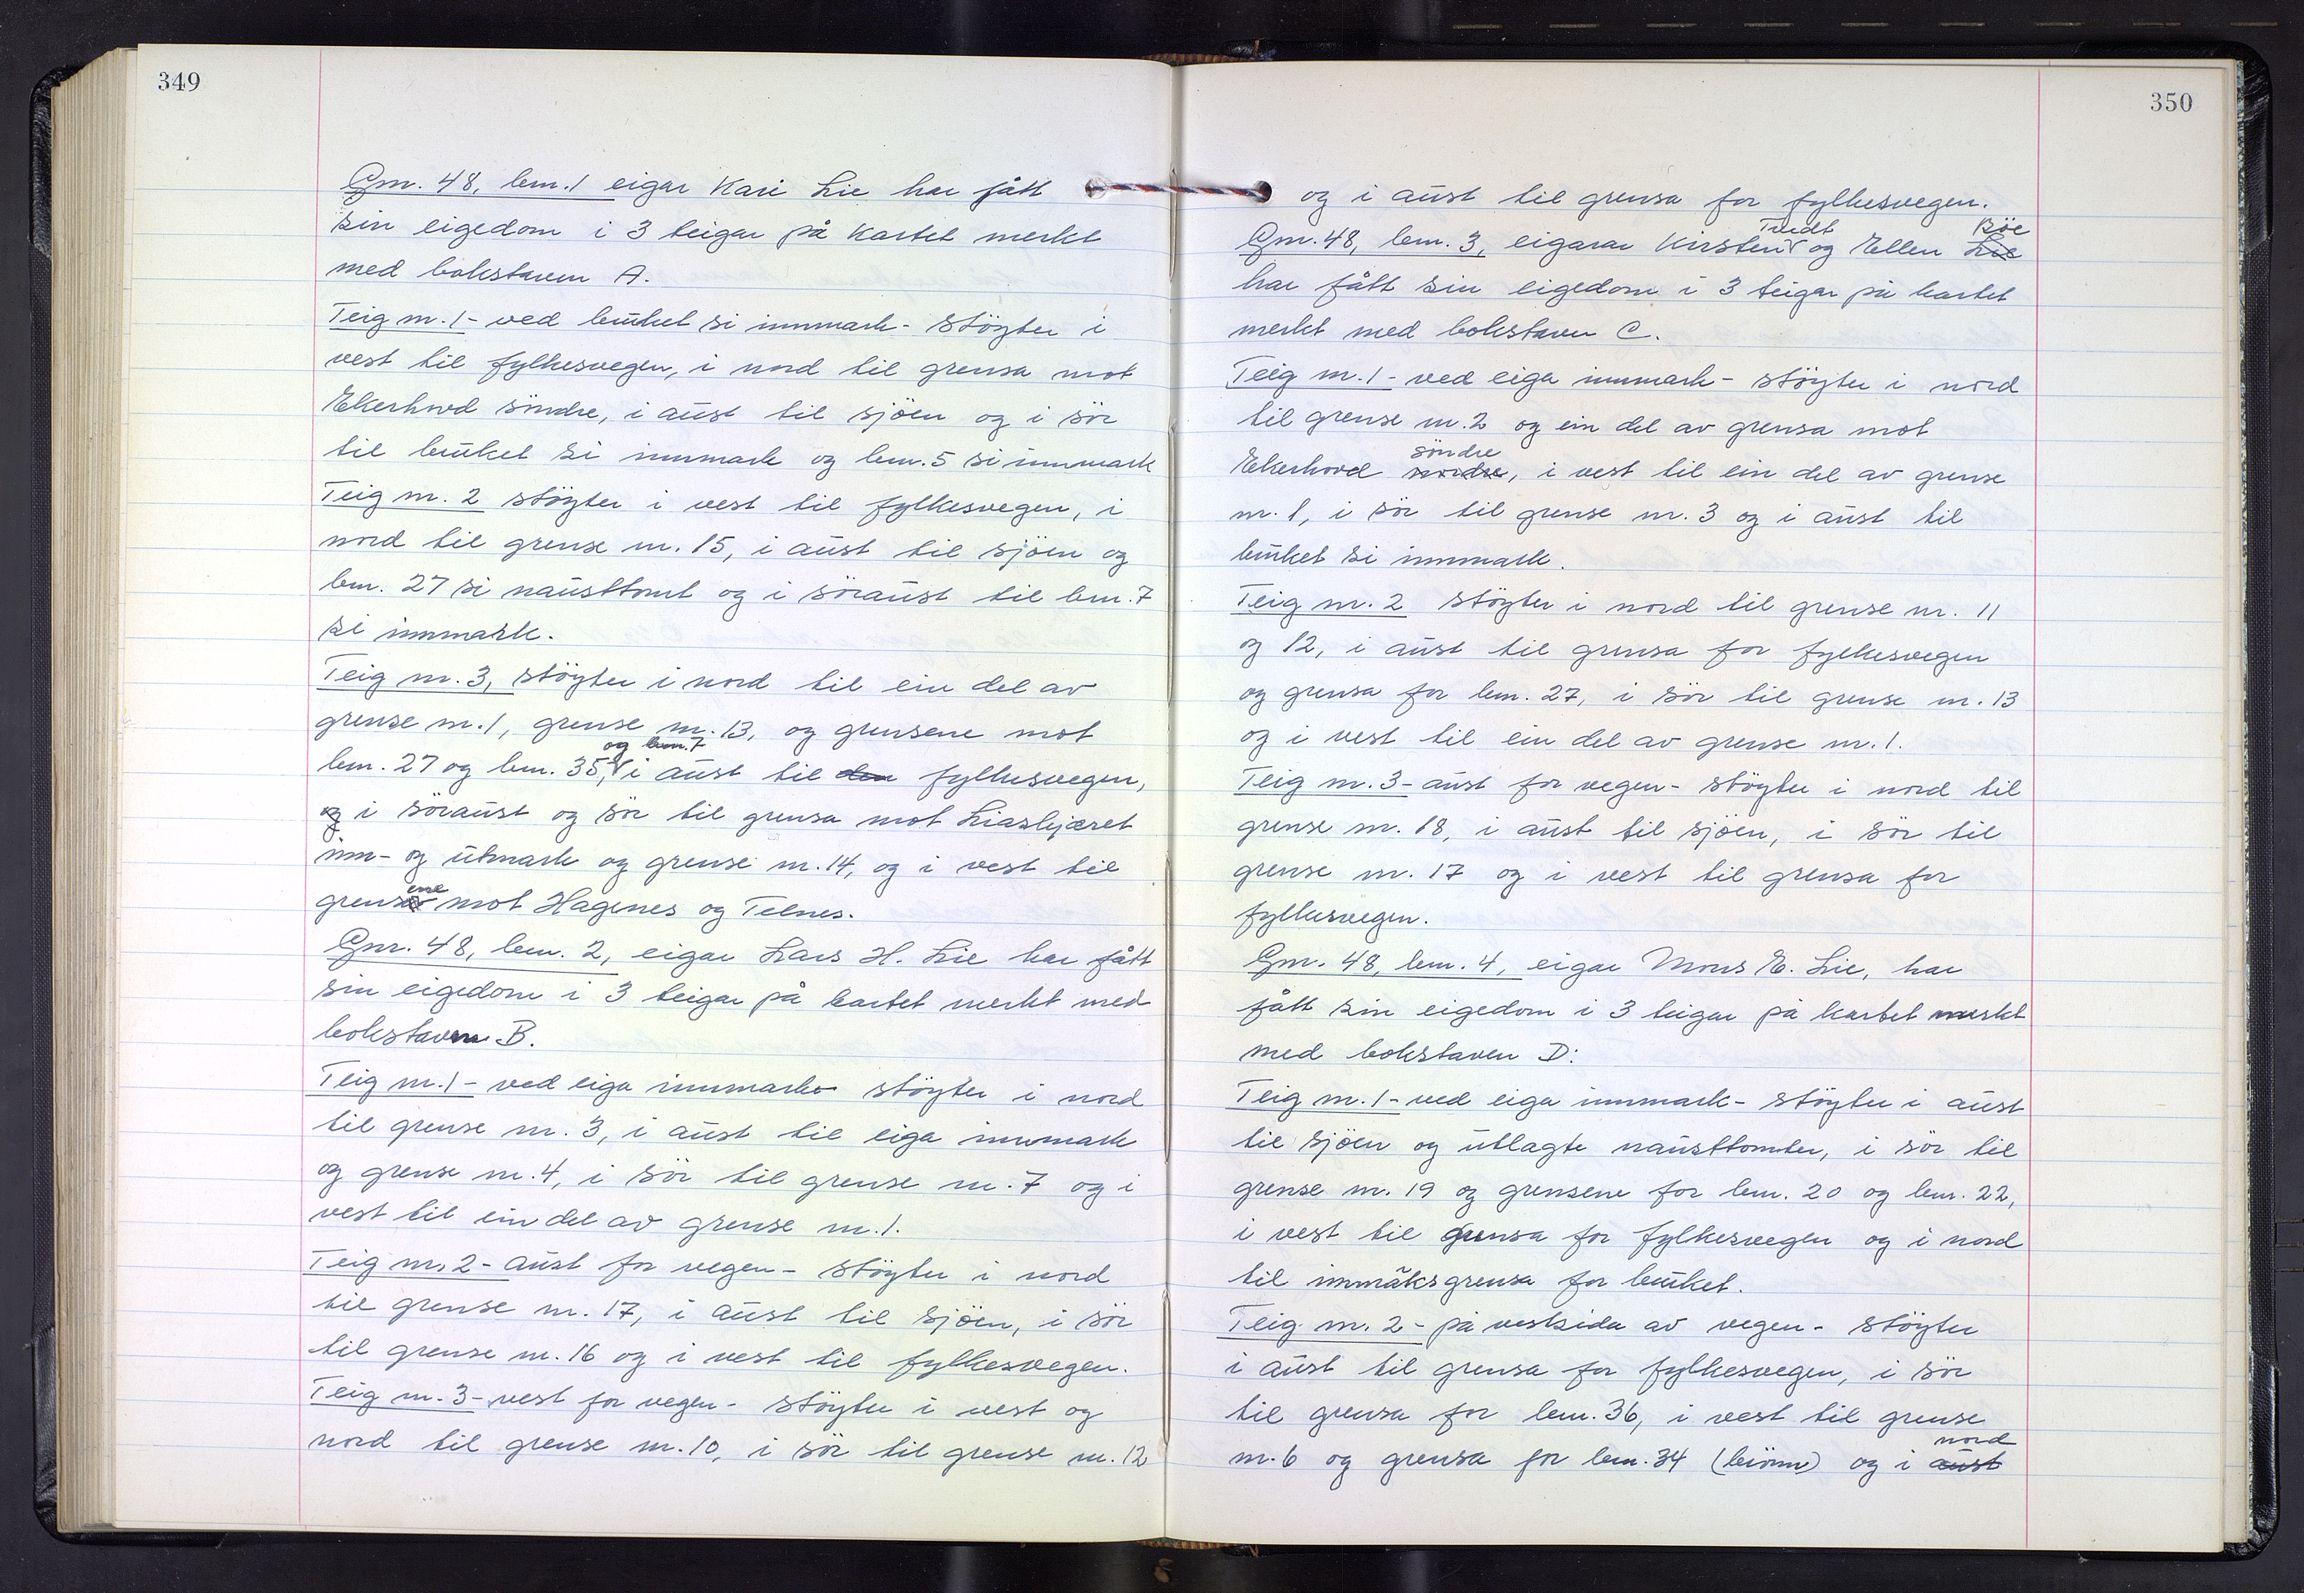 349
Gnr. 48, bnr. 1 eigar Kari Lie har fått
sin eigedom i 3 teigar på kartet merkt
med bokstaven A.
Teig nr. 1 - ved bruket si innmark - støyter i
vest til fylkesvegen, i nord til grensa mot
Ekerhovd söndre, i aust til sjöen og i sör
til bruket si innmark og bnr. 5 si innmark
Teig nr. 2 støyter i vest til fylkesvegen, i
nord til grense nr. 15, i aust til sjöen og
bnr. 27 si nausttomt og i söraust til bnr. 7
si innmark.
Teig nr. 3, støyter i nord til ein del av
grense nr. 1, grense nr. 13, og grensene mot
og bnr. 7
bnr. 27 og bnr. 35, i aust til den fylkesvegen,
og i söraust og sör til grensa mot Liaskjæret
inn- og utmark og grense nr. 14, og i vest til
grensene mot Hagenes og Telnes.
Gnr. 48, bnr. 2, eigar Lars H. Lie har fått
sin eigedom i 3 teigar på kartet merkt med
bokstaven B.
Teig nr. 1 - ved eiga innmark - støyter i nord
til grense nr. 3, i aust til eiga innmark
og grense nr. 4, i sör til grense nr. 7 og i
vest til ein del av grense nr. 1.
Teig nr. 2 - aust for vegen - støyter i nord
til grense nr. 17, i aust til sjöen, i sör
til grense nr. 16 og i vest til fylkesvegen.
Teig nr. 3 - vest for vegen - støyter i vest og
nord til grense nr. 10, i sör til grense nr. 12
350
og i aust til grensa for fylkesvegen.
Tredt Böe
Gnr. 48, bnr. 3, eigarar Kirsten og Ellen Lie
har fått sin eigedom i 3 teigar på kartet
merkt med bokstaven C.
Teig nr. 1 - ved eiga innmark - støyter i nord
til grense nr. 2 og ein del av grensa mot
söndre
Ekerhovd nordre, i vest til ein del av grense
nr. 1, i sör til grense nr. 3 og i aust til
bruket si innmark.
Teig nr. 2 støyter i nord til grense nr. 11
og 12, i aust til grensa for fylkesvegen
og grensa for bnr. 27, i sör til grense nr. 13
og i vest til ein del av grense nr. 1.
Teig nr. 3 - aust for vegen - støyter i nord til
grense nr. 18, i aust til sjöen, i sör til
grense nr. 17 og i vest til grensa for
fylkesvegen.
Gnr. 48, bnr. 4, eigar Mons E. Lie, har
fått sin eigedom i 3 teigar på kartet merkt
med bokstaven D:
Teig nr. 1 - ved eiga innmark - støyter i aust
til sjöen og utlagte nausttomter, i sör til
grense nr. 19 og grensene for bnr. 20 og bnr. 22,
i vest til grensa for fylkesvegen og i nord
til innmarksgrensa for bruket.
Teig nr. 2 - på vestsida av vegen - støyter
i aust til grensa for fylkesvegen, i sör
til grensa for bnr. 36, i vest til grense
nord
nr. 6 og grensa for bnr. 34 (brönn) og i aust